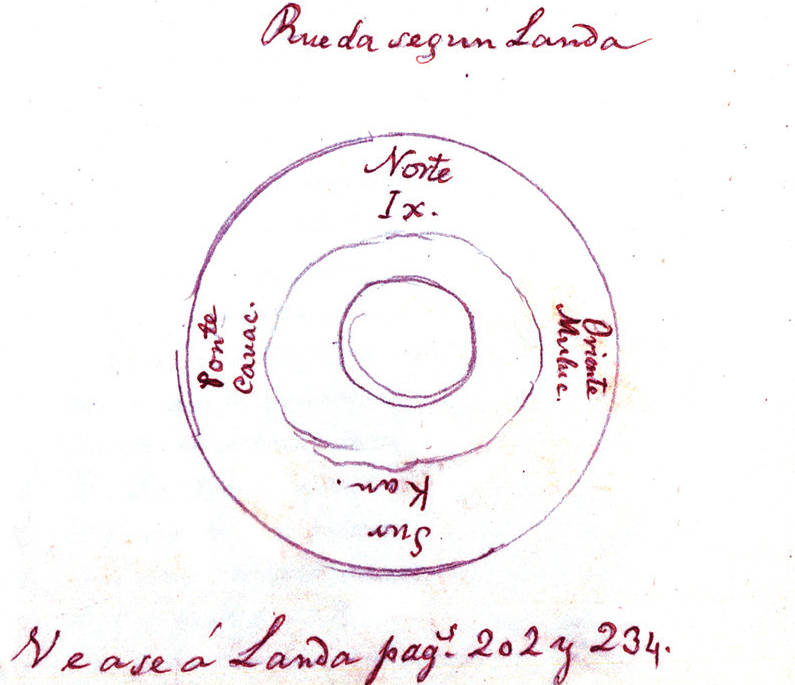 Rueda segun Landa
Norte
Ix.
Oriente
Muluc.
Sur
Kan.
Ponte
Cauac.
Vease á Landa pagˢ. 202 y 234.